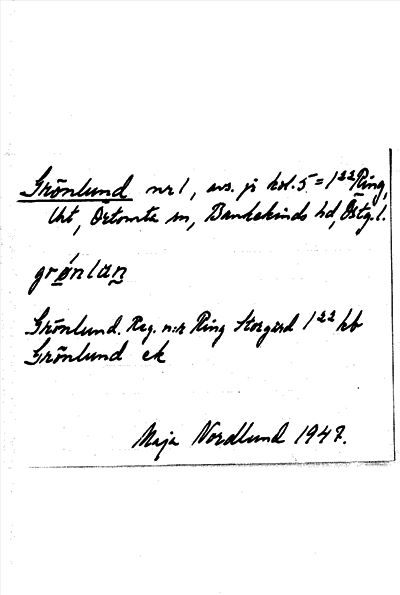 Grönlund nr 1, avs. jr kol. 5 = 1²²Ring,
lht, Örtomta sn, Bankekinds hd, Östg. l.
grø̀nlan̲
Grönlund. Reg. n:r Ring Storgård 1²² kb
Grönlund ek
Maja Nordlund 1947.